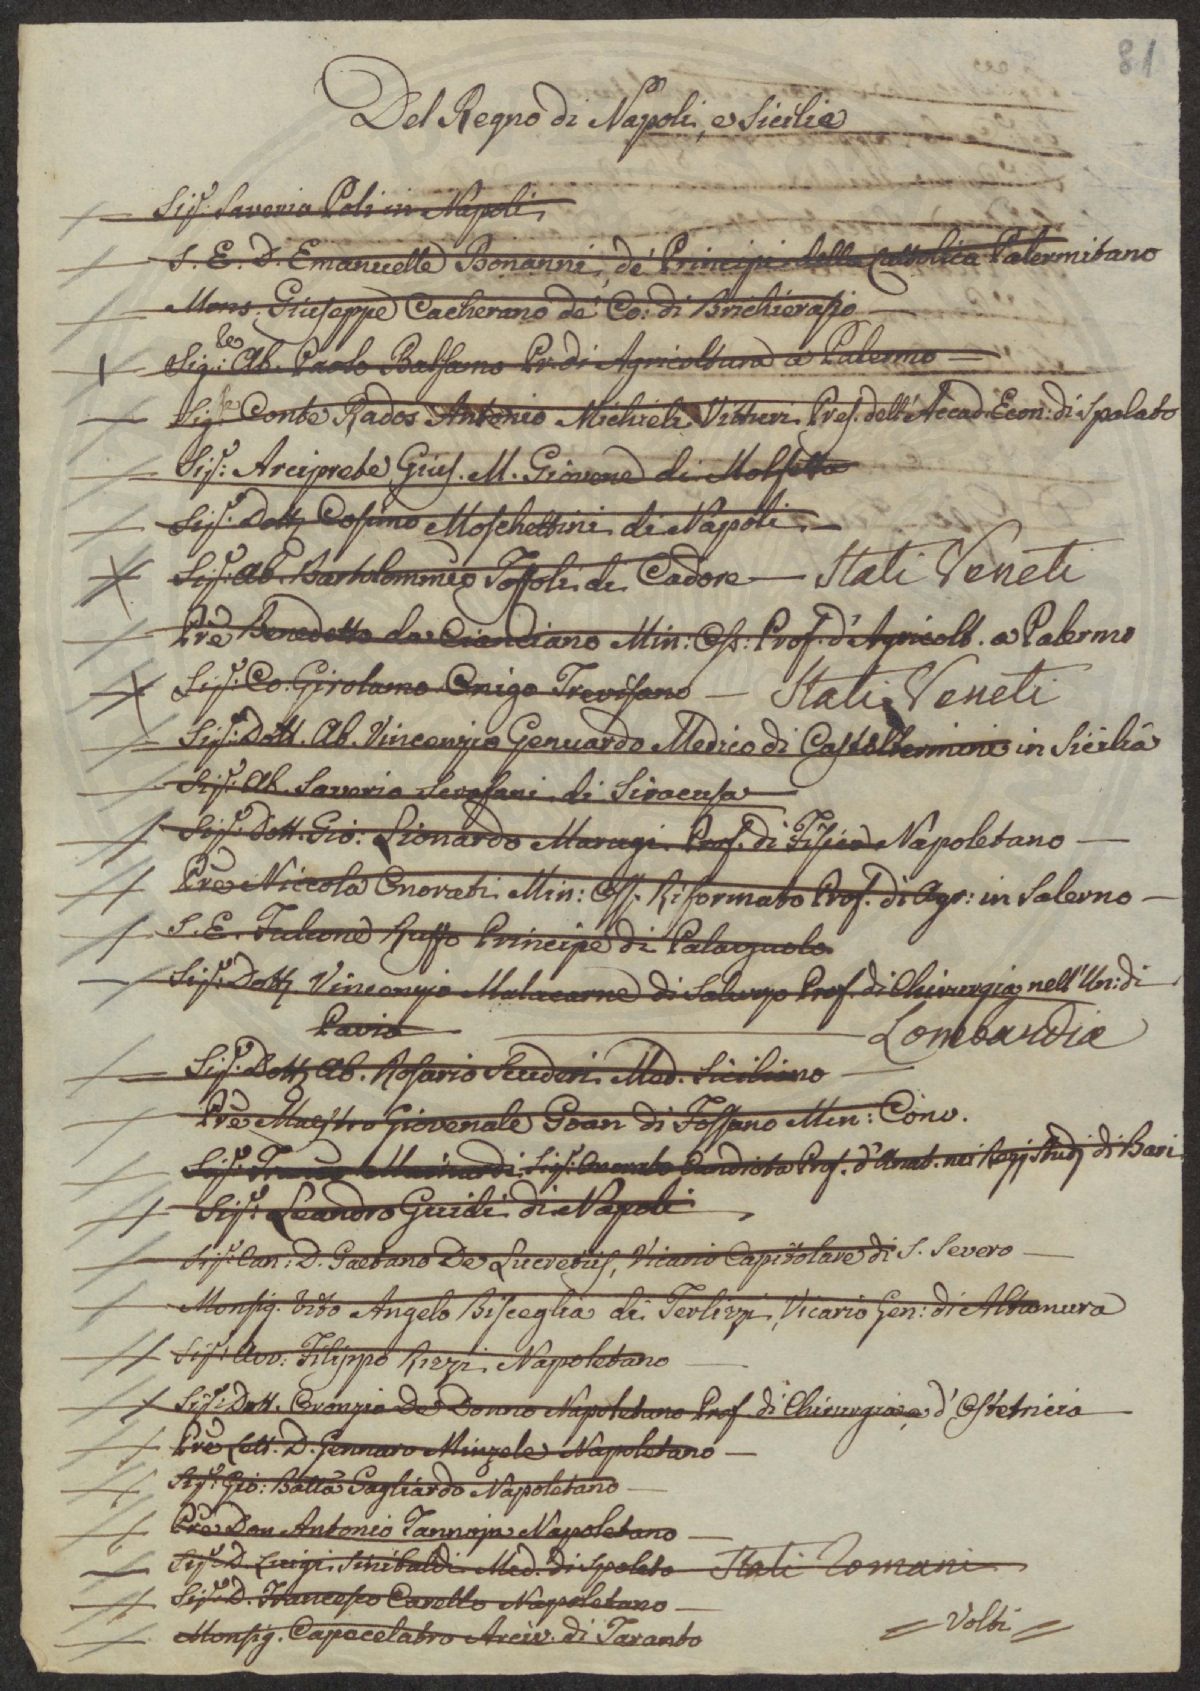 81
Del Regno di Napoli, e Sicilia
Sig.r Saverio Poli in Napoli
S. E. D. Emanuelle Bonanni, de' Principi della Cattolica Palermitano
Mons. Giuseppe Cacherano de' Co: di Bricherasio
Sig.le Ab. Paolo Balsamo Pr. di Agricoltura a Palermo
Sig.r Conte Rados Antonio Michieli Vitturi Pres. dell'Accad. Econ: di Spalato
Sig.r Arciprete Gius. M. Giovene di Molfetta
Sig.r Dott. Cosimo Moschettini di Napoli
Sig.r Ab. Bartolommeo Toffoli di Cadore — Stati Veneti
Pre Benedetto da Cianciano Min: Oss: Prof. d'Agricolt. a Palermo
Sig.r Co. Girolamo Onigo Trevisano — Stati Veneti
Sig.r Dott. Ab. Vincenzio Genuardo Medico di Casteltermini in Sicilia
Sig.r Ab. Saverio Scrofani di Siracusa
Sig.r Dott. Gio: Lionardo Marugi Prof. di Fisica Napoletano —
Pre Niccola Onorati Min: Oss. Riformato Prof. di Agr: in Salerno —
S. E. Fulcone Ruffo Principe di Palazzuolo
Sig.r Dott. Vincenzio Malacarne di Saluzzo Prof. di Chirurgia nell'Un: di
Pavia — Lombardia
Sig.r Dott. Ab. Rosario Scuderi Med. Siciliano —
Pre Maestro Giovenale Goan di Fossano Min: Conv.
Sig.r Onorato Candiota Prof. d'Anat. nei Regj Studj di Bari
Sig.r Leandro Guidi di Napoli
Sig.r Can: D. Gaetano De Lucretiis, Vicario Capitolare di S. Severo —
Monsig. Vito Angelo Bisceglia di Terlizzi, Vicario Gen: di Altamura
Sig.r Avv: Filippo Rizzi Napoletano —
Sig.r Dott. Oronzio De Donno Napoletano Prof. di Chirurgia, e d'Ostetricia
Pre Lett. D. Gennaro Minzele Napoletano —
Sig.r Gio: Batta Gagliardo Napoletano —
Pre Don Antonio Tannoja Napoletano —
Sig.r D. Luigi Sinibaldi Med. di Spoleto Stati Romani
Sig.r D. Francesco Carello Napoletano —
Monsig. Capecelatro Arciv. di Taranto
= Volti =